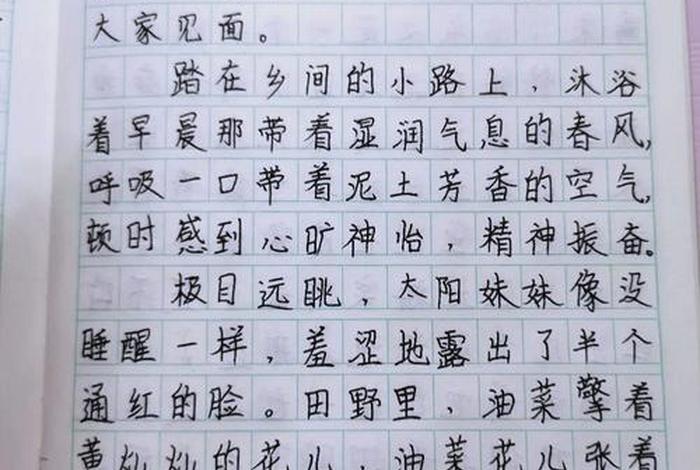 大家见面。
踏在乡间的小路上，沐浴
着早晨那带着湿润气息的春风，
呼吸一口带着泥土芳香的空气，
顿时感到心旷神怡，精神振奋。
极目远眺，太阳妹妹像没
睡醒一样，羞涩地露出了半个
通红的脸。田野里，油菜擎着
黄灿灿的花儿，油菜花儿张着